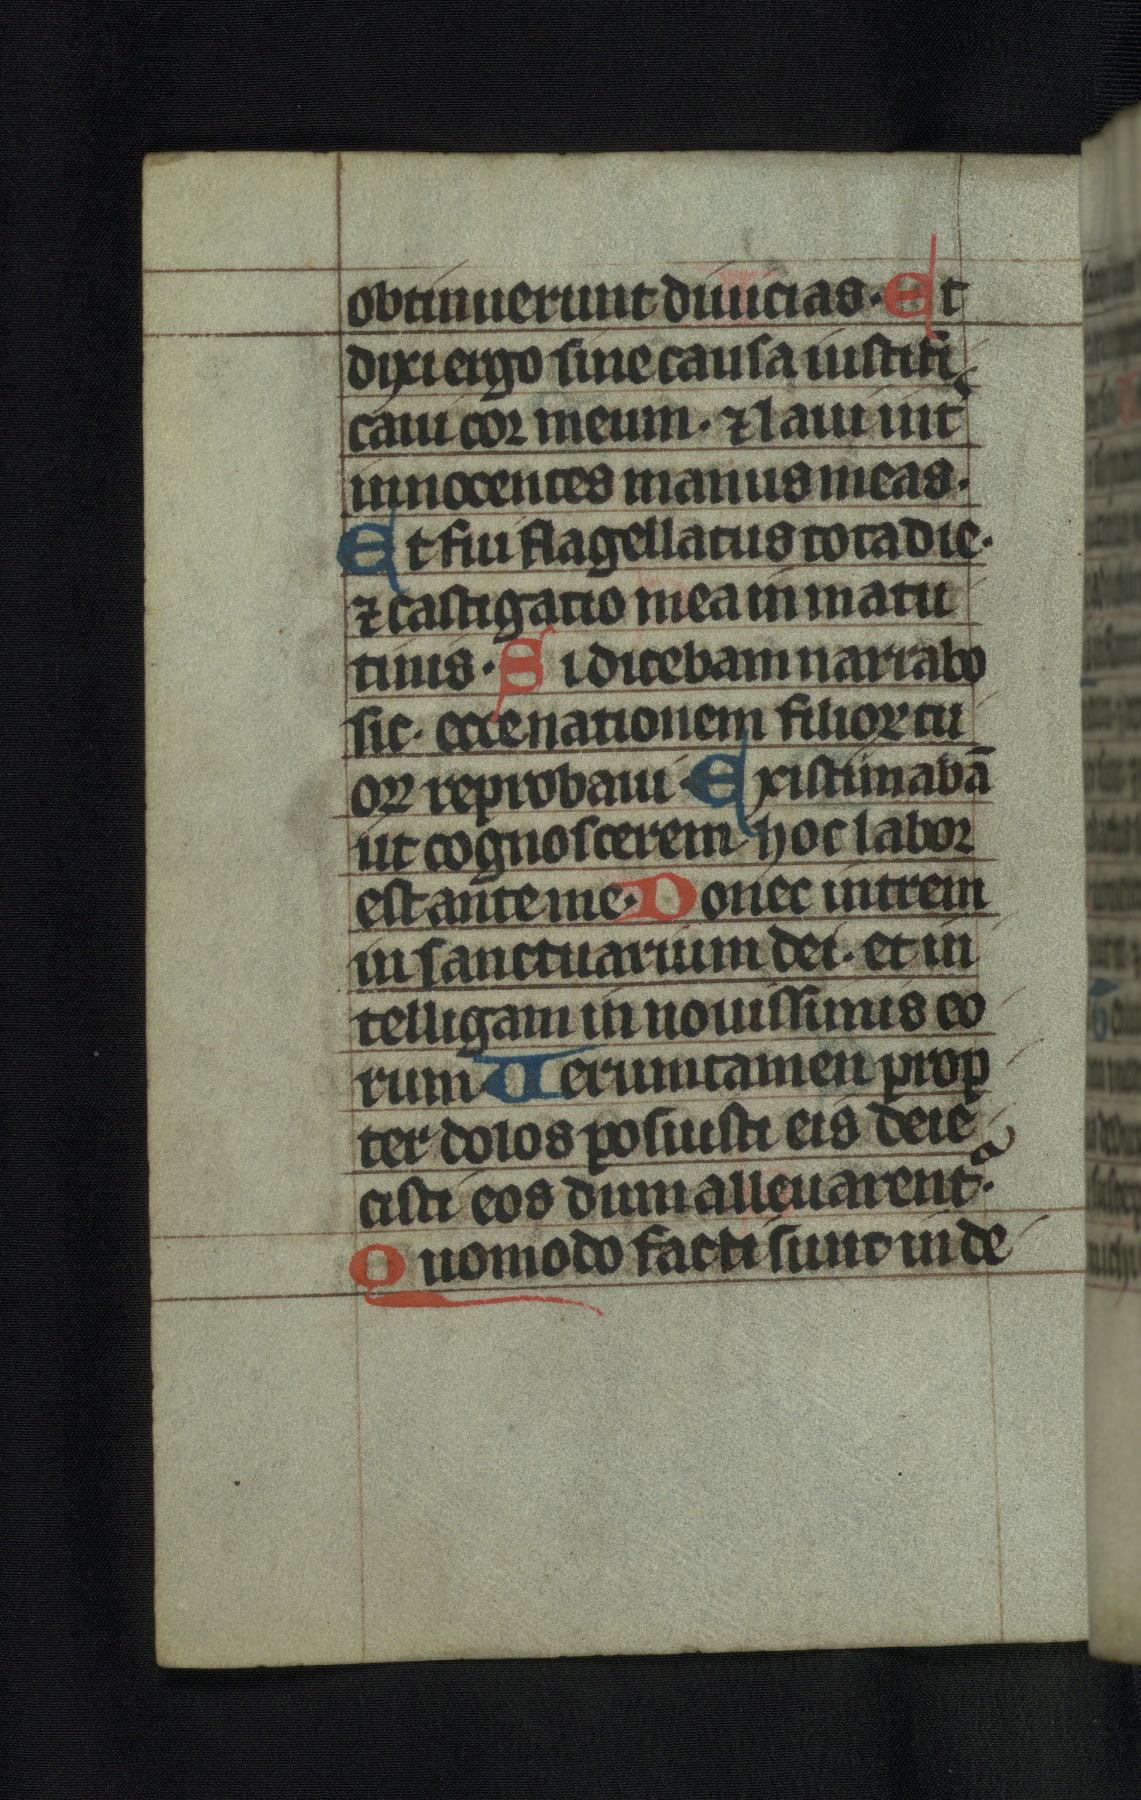 obtinuerunt diuicias. Et
dixi ergo sine causa iustifi
caui cor meum. ⁊ laui int̾
innocentes manus meas.
Et fui flagellatus tota die.
⁊ castigatio mea in matu
tinis. Si dicebam narrabo
sic. ecce nationem filior tu
or reprobaui. Existimabā
ut cognoscerem hoc labor
est ante me. Donec intrem
in sanctuarium dei. et in
telligam in nouissimis eo
rum. Uerumtamen prop
ter dolos posuisti eis deie
cisti eos dum alleuarent᷑.
Quomodo facti sunt in de